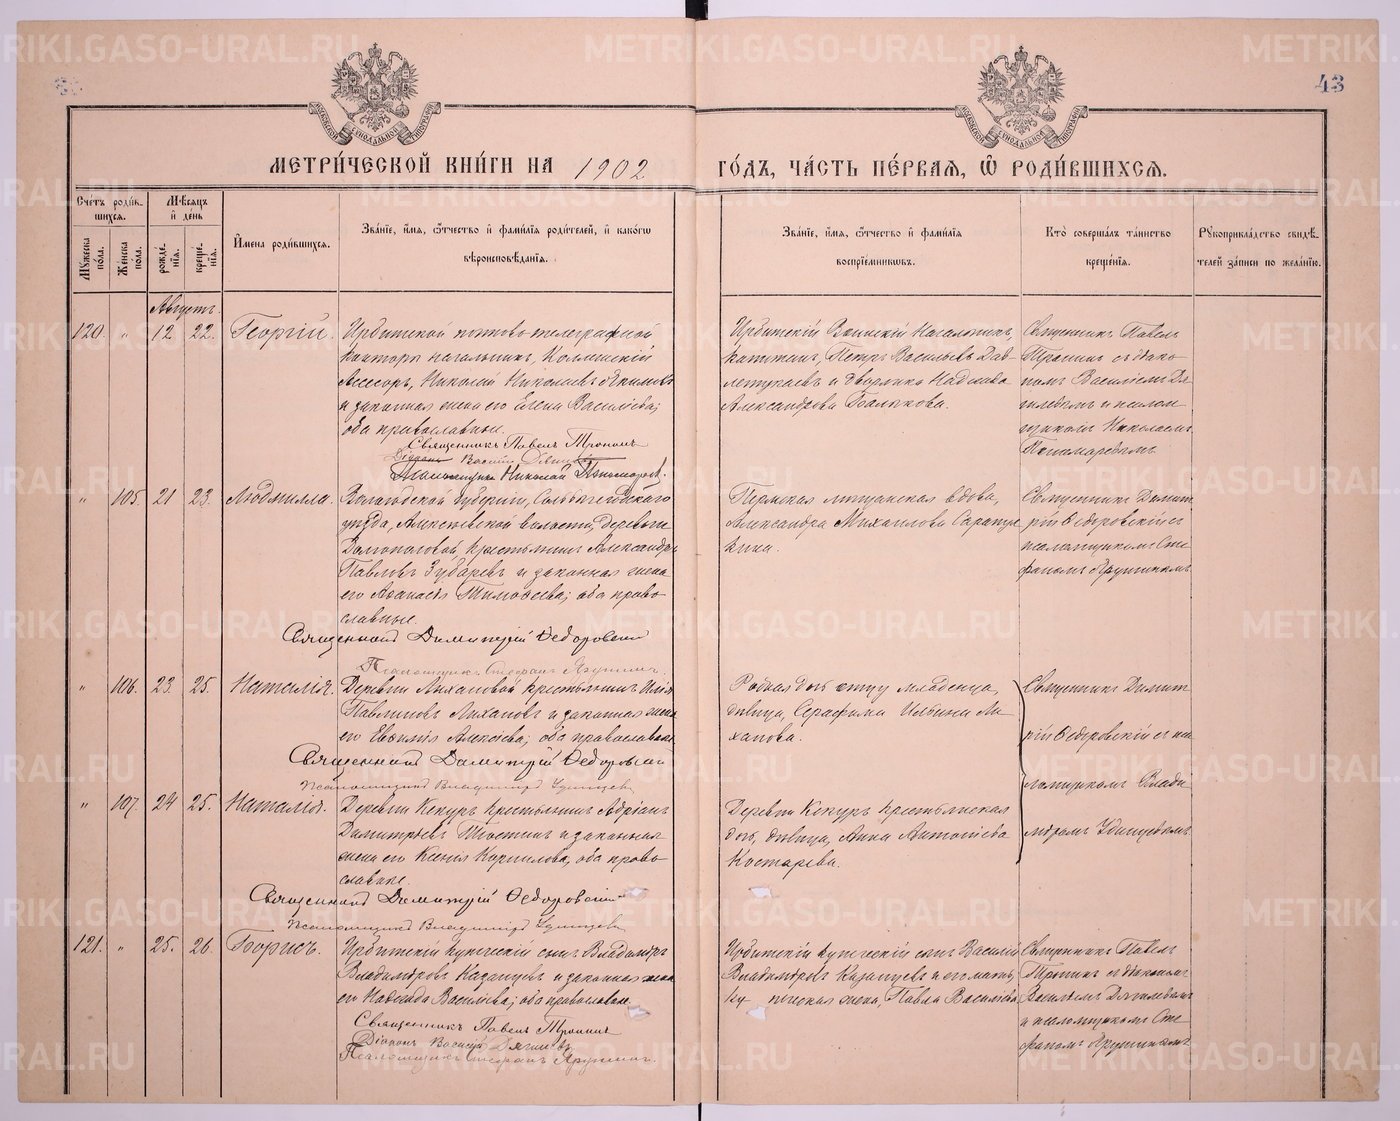 43
МЕТРИ́ЧЕСКОЙ КНИ́ГИ НА 1902 ГО́ДЪ, ЧА́СТЬ ПЕ́РВАѦ, Ѡ҆ РОДИ́ВШИХСѦ.
Сче́тъ роди́в-
шихся.
Мѣ́сяцъ
и҆ день
Мꙋ́жеска по́ла.
Же́нска по́ла.
рожде́-
нїѧ.
креще́-
нїѧ.
И҆мена роди́вшихся.
Зва́нїе, и҆́мѧ, ѻ҆́тчество и҆ фами́лїѧ роди́телей, и҆ како́гѡ
вѣроисповѣ́данїѧ.
Зва́нїе, и҆́мѧ, ѻ҆́тчество и҆ фами́лїѧ
воспрїе́мникѡвъ.
Кто̀ соверша́лъ та́инство
креще́нїѧ.
Рꙋкоприкла́дство свидѣ́-
телей за́писи по жела́нїю.
Августъ.
120. " 12 22. Георгій.
Ирбитской почтово-телеграфной
конторы начальникъ, Коллежскій
Ассесоръ, Николай Николаевъ Якимовъ
и законная жена его Елена Василіева;
оба православные.
Священникъ Павелъ Тронинъ
Діаконъ Василій
Псаломщикъ Николай Пономаревъ.
Ирбитскій Воинскій Начальникъ,
капитанъ, Петръ Васильевъ Дав-
летукаевъ и дворянка Надежда
Александрова Балакова.
Священникъ Павелъ
Тронинъ съ діако-
номъ Василіемъ Дя-
гилевымъ и псалом-
щикомъ Николаемъ
Пономаревымъ
" 105. 21 23. Людмилла.
Вологодской губерніи, Сольвычегодскаго
уѣзда, Алексѣевской волости, деревни
крестьянинъ Александръ
Павловъ Зубаревъ и законная жена
его Аѳанасія Тимоѳеева; оба право-
славные.
Священникъ Димитрій Ѳедоровскій
Псаломщикъ Стефанъ Ярушинъ.
Пермская мѣщанская вдова,
Александра Михаилова Сарапул-
кина.
Священникъ Димит-
рій Ѳедоровскій съ
псаломщикомъ Сте-
фаномъ Ярушинымъ
" 106. 23. 25. Наталія.
Деревни Лихановой крестьянинъ Илія
Павлиновъ Лихановъ и законная жена
его Евѳимія Алексіева; оба православные
Священникъ Димитрій Ѳедоровскій
Псаломщикъ Владиміръ Удинцевъ
Родная дочь отцу младенца,
дѣвица, Серафима Ильина Ли-
ханова.
Священникъ Димит-
рій Ѳедоровскій съ пса-
ломщикомъ Влади-
міромъ Удинцевымъ
" 107. 24 25. Наталія.
Деревни Кекуръ крестьянинъ Адріанъ
Димитріевъ Тюстинъ и законная
жена его Ксенія Корнилова, оба право-
славные.
Священникъ Димитрій Ѳедоровскій
Псаломщикъ Владиміръ Удинцевъ
Деревни Кекуръ крестьянская
дочь, дѣвица, Анна Антоніева
Костарева.
121. " 25. 26. Борисъ.
Ирбитскій купеческій сынъ Владиміръ
Владиміровъ Казанцевъ и законная жена
его Надежда Василіева; оба православные
Священникъ Павелъ Тронинъ
Діаконъ Василій Дягилевъ
Псаломщикъ Стефанъ Ярушинъ.
Ирбитскій купеческій сынъ Василій
Владиміровъ Казанцевъ и его мать,
ку печеская жена, Павла Василіева
Священникъ Павелъ
Тронинъ съ діакономъ
Василіемъ Дягилевымъ
и псаломщикомъ Сте-
фаномъ Ярушинымъ